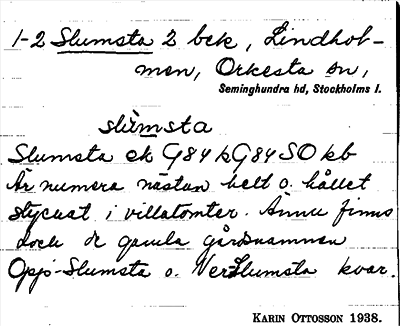 1-2 Slumsta 2 bck, Lindhol-
men, Orkesta sn,
Seminghundra hd, Stockholms l.
slùmsta
Slumsta ek G84 k G84SO kb
Är numera nästan helt o. hållet
stycast i villatomter. Ännu finns
dock de gamla gårdsnamnen
Opp-Slumsta o. Ner-Slumsta kvar.
KARIN OTTOSSON 1938.